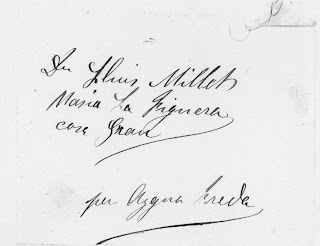 Dn Lluis Millet
Masia La Figuera
casa Gran
per Aygua freda